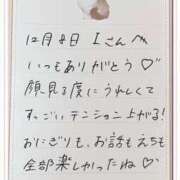 12月8日 Iさんへ
いつもありがとう♡
顔見る度にうれしくて
すっごいテンション上がる!
おにぎりも、お話もえちも
全部楽しかったね♡